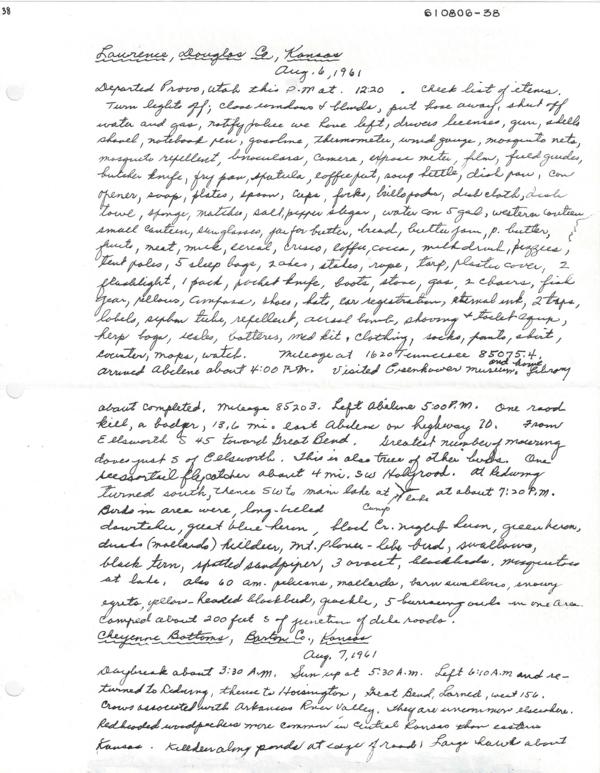 38
610806-38
Lawrence, Douglas Co, Kansas
Aug. 6, 1961
Departed Provo, Utah this P.M at. 12:20 . Check list of items.
Turn lights off, close windows & blinds, put hose away, shut off
water and gas, notify police we have left, drivers licenses, gun, shells
shovel, notebook pen, gasoline, thermometer, wind gauge, mosquito nets,
mosquito repellent, binoculars, camera, expose meter, film, field guides,
butcher knife, fry pan, spatula, coffee pot, soup kettle, dish pan, can
opener, soap, plates, spoon, cups, forks, billfolds, dish cloth, dish
towel, sponge, matches, salt, pepper sugar, water can 5 gal, western canteen
small canteen, sunglasses, jar for butter, bread, butter, jam, p. butter,
fruits, meat, milk, cereal, crisco, coffee, cocoa, milk drink, fizzies,
tent poles, 5 sleep bags, 2 axes, stakes, rope, tarp, plastic cover, 2
flashlight, 1 pack, pocket knife, boots, stove, gas, 2 chairs, fish
gear, pillows, compass, shoes, hats, car registration, eternal ink, 2 traps,
labels, siphon tube, repellent, aerosol bomb, shaving & toilet equip,
herp bags, scales, batteries, med kit, clothing, socks, pants, shirt,
counter, maps, watch. Mileage at 1620 Tennessee 85075.4.
arrived Abilene about 4:00 P.M. Visited Eisenhower museum, and home Library
about completed. Mileage 85203. Left Abilene 5:00 P.M. One road
kill, a badger, 13.6 mi. east Abilene on highway 70. From
Ellsworth S 45 toward Great Bend. Greatest number of mourning
doves just S of Ellsworth. This is also true of other birds. One
scissortail flycatcher about 4 mi. SW Holyrood. At Redwing
turned south, thence SW to main lake at lake at about 7:20 P.M.
Camp
Birds in area were, long-billed
dowitcher, great blue heron, black Cr. night heron, green heron,
ducks (mallards) killdeer, Mt. Plover-like bird, swallows,
black tern, spotted sandpiper, 3 avocet, blackbirds, mosquitoes
at lake, also 60 am. pelicans, mallards, barn swallows, snowy
egrets, yellow-headed blackbird, grackle, 5 burrowing owls in one area.
Camped about 200 feet S of junction of dike roads.
Cheyenne Bottoms, Barton Co., Kansas
Aug. 7, 1961
Daybreak about 3:30 A.M. Sun up at 5:30 A.M. Left 6:10 A.M and re-
turned to Redwing, thence to Hoisington, Great Bend, Larned, west 156.
Crows associated with Arkansas River Valley. They are uncommon elsewhere.
Redheaded woodpeckers more common in Central Kansas than eastern
Kansas. Killdeer along ponds at edge of road. Large hawk about